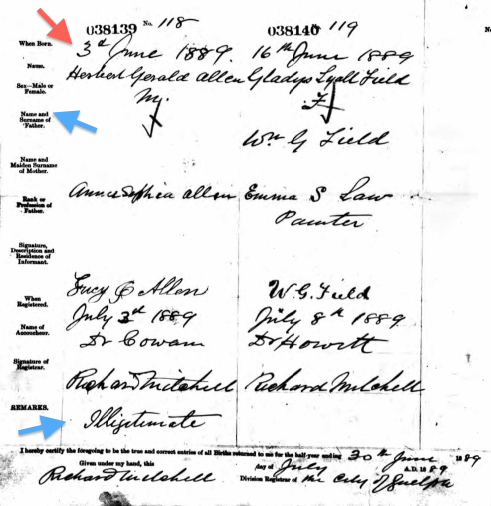 038139 No. 118 038140 119 No.
When Born. 3d June 1889. 16th June 1889
Name. Herbert Gerald Allen Gladys Lyall Field
Sex—Male or Female. M. F
Name and Surname of Father. Wm G Field
Name and Maiden Surname of Mother. Annie Sophia Allen Emma S Law
Rank or Profession of Father. Painter
Signature, Description and Residence of Informant. Lucy Allen W. G. Field
When Registered. July 3d 1889 July 8th 1889
Name of Accoucheur. Dr Cowan Dr Howitt
Signature of Registrar. Richard Mitchell Richard Mitchell
REMARKS. Illigitimate
I hereby certify the foregoing to be the true and correct entries of all Births returned to me for the half-year ending 30th June 1889
Given under my hand, this day of July A.D. 1889
Richard Mitchell Division Registrar of the City of Guelph